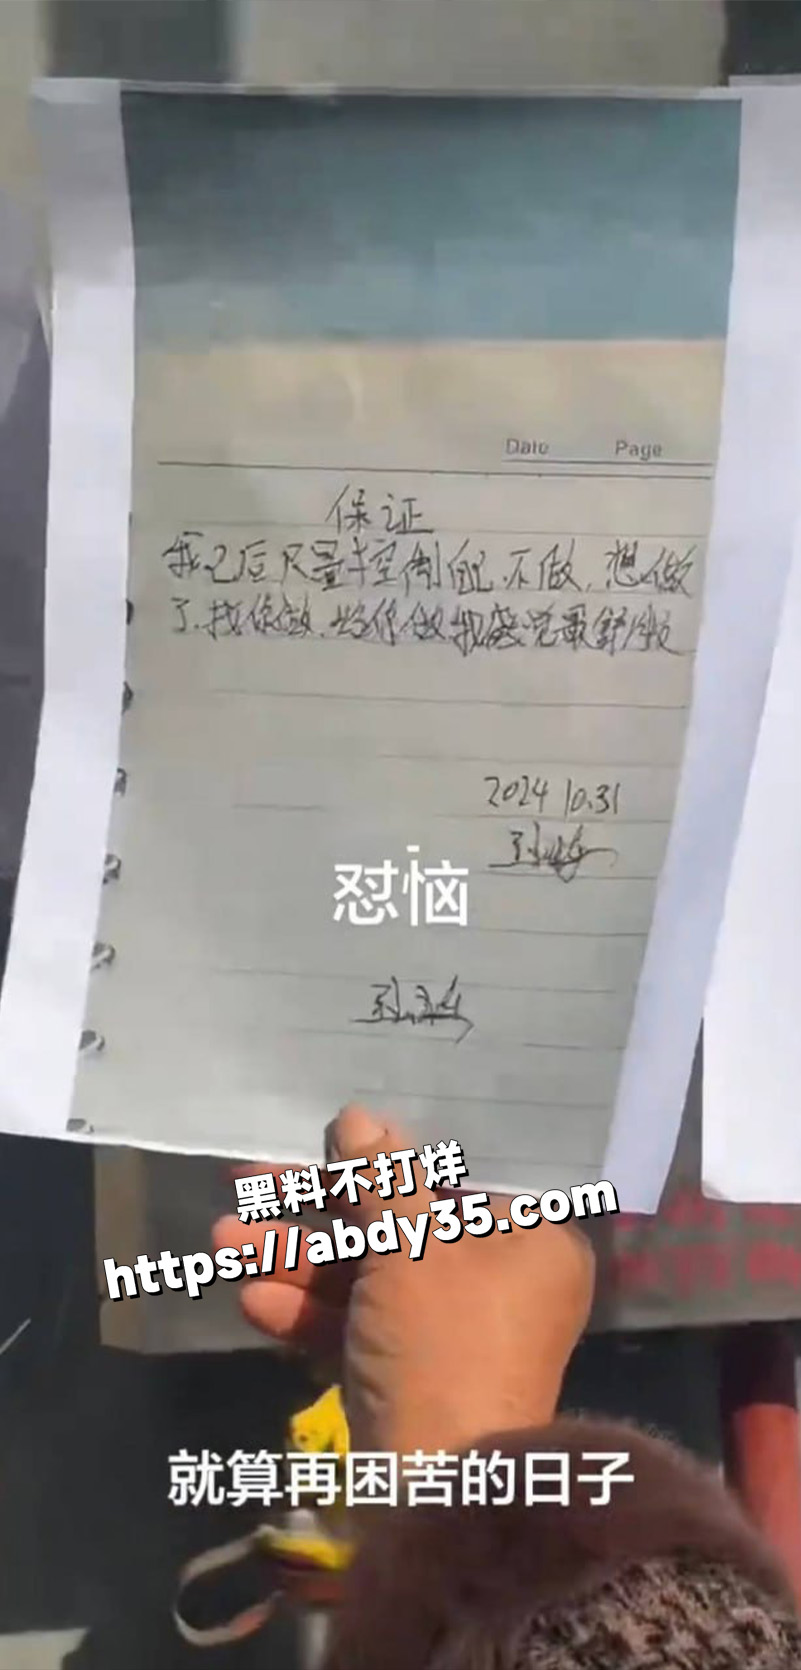 Date Page
保证
我已后尽量控制自己不做.想做
了.找你做.给你做我感觉最舒服
2024 10.31
怼恼
黑料不打烊
https://abdy35.com
就算再困苦的日子